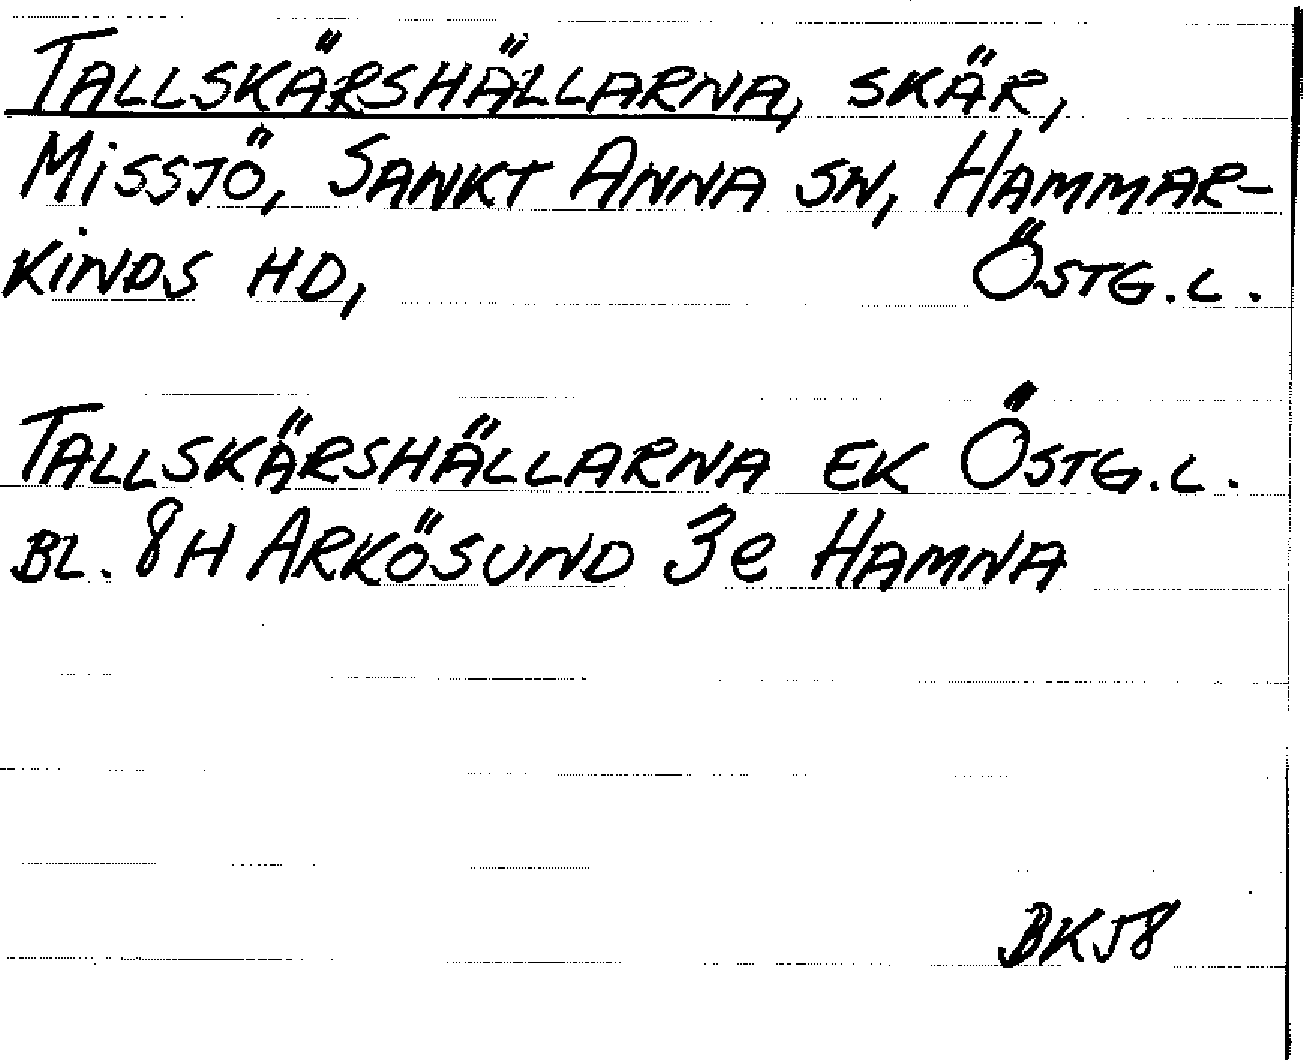 TALLSKÄRSHÄLLARNA, SKÄR,
MISSJÖ, SANKT ANNA SN, HAMMAR-
KINDS HD, ÖSTG.L.
TALLSKÄRSHÄLLARNA EK ÖSTG.L.
BL. 8H ARKÖSUND 3e HAMNA
BK58